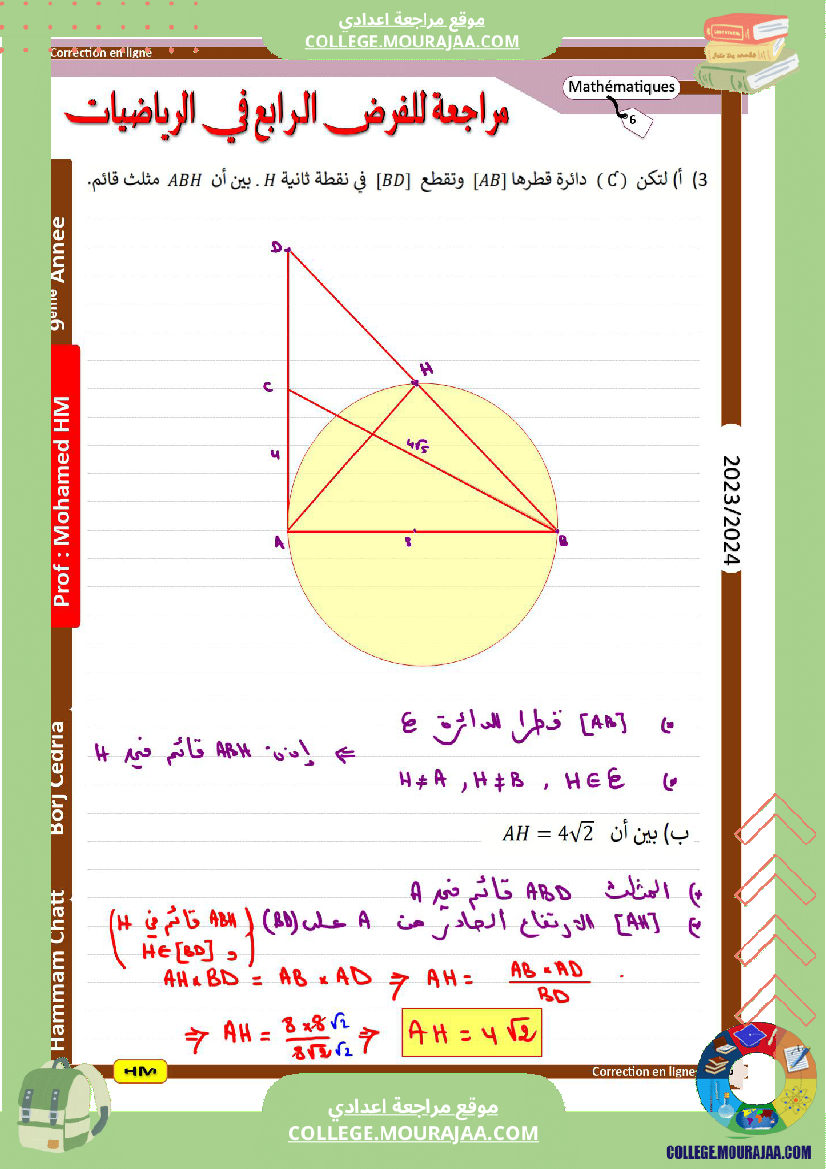 موقع مراجعة اعدادي
COLLEGE.MOURAJAA.COM
Correction en ligne
Mathématiques
6
مراجعة للفرض الرابع في الرياضيات
3) أ) لتكن (C) دائرة قطرها [AB] وتقطع [BD] في نقطة ثانية H . بين أن ABH مثلث قائم.
9ème Annee
Prof : Mohamed HM
Borj Cedria
Hammam Chatt
2023/2024
D
H
C
4√5
4
A
8
B
[AB] قطرا للدائرة C
H≠A , H≠B , H∈C
⇐ إذن ABH قائم في H
ب) بين أن AH = 4√2
المثلث ABD قائم في A
[AH] الارتفاع الصادر من A على (BD) (ABH قائم في H
و H∈[BD])
AH × BD = AB × AD ⇒ AH = AB × AD / BD
⇒ AH = 8×8√2 / 8√2√2 ⇒ AH = 4√2
HM
Correction en ligne
موقع مراجعة اعدادي
COLLEGE.MOURAJAA.COM
COLLEGE.MOURAJAA.COM